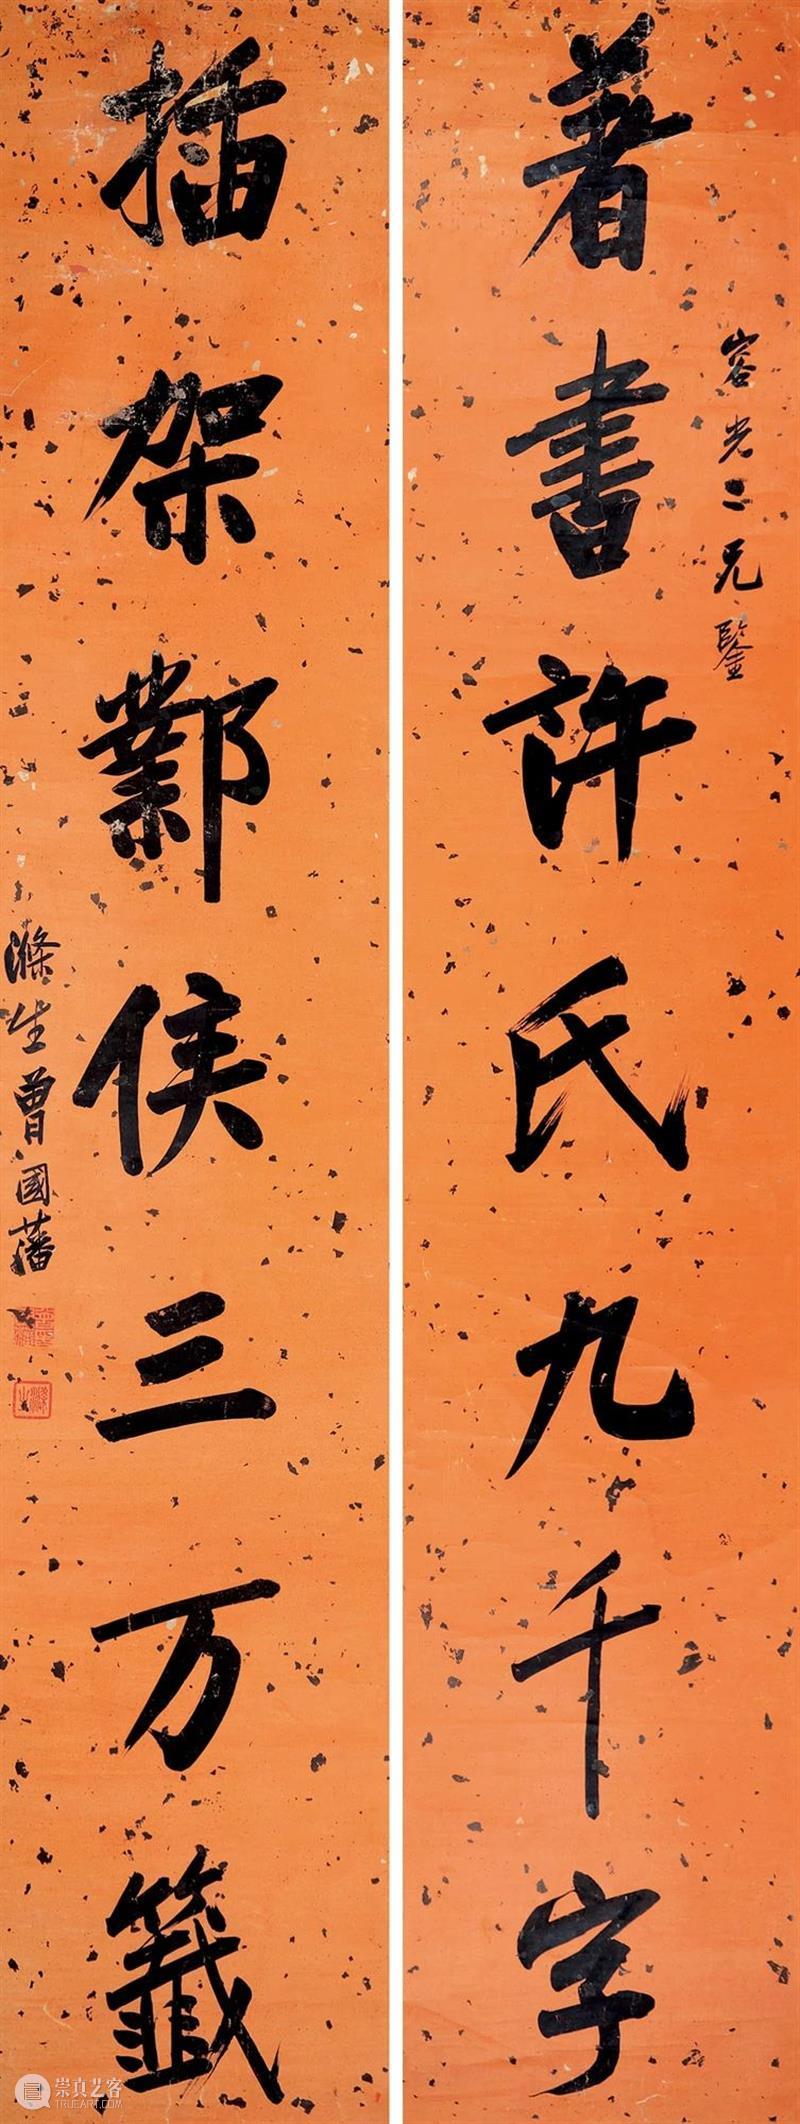 著書許氏九千字
容光二兄鑒
插架鄴侯三万籤
滌生曾國藩
崇真艺客
TRUEART.COM